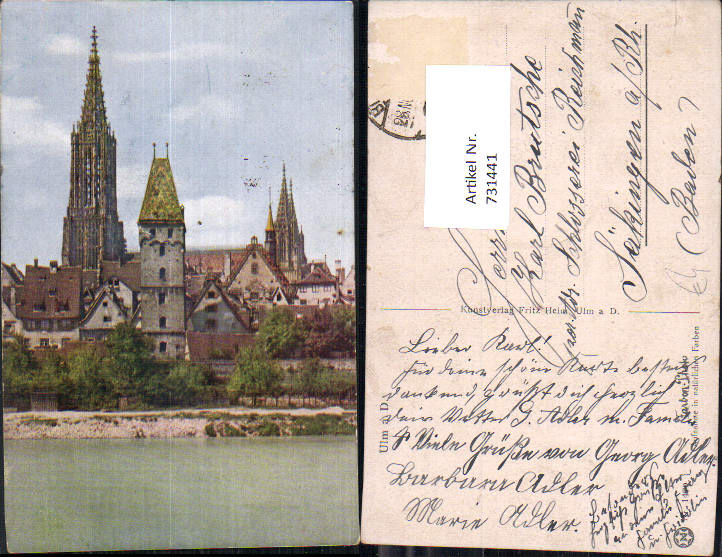 Artikel Nr.
731441
Herrn
Karl Brutsche
Schlosserei Reichman
Säkingen a/Rh.
(Baden)
Kunstverlag Fritz Heim, Ulm a D.
Ulm a D
Aufnahme in natürlichen Farben
Lieber Karl!
Für deine schöne Karte bestens
dankend, grüßt dich herzlich
dein Vetter G. Adler u. Familie
Viele Grüße von Georg Adler.
Barbara Adler
Marie Adler.